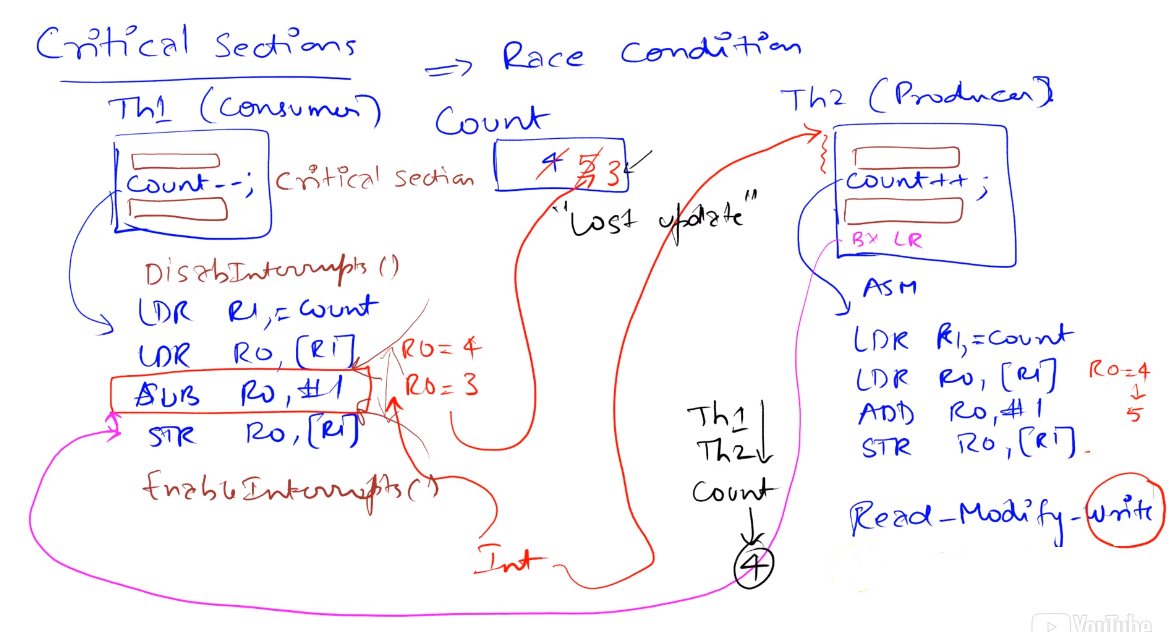 Critical Sections
=> Race Condition
Th1 (Consumer)
Count
Th2 (Producer)
4 5 3
Count--;
Critical Section
Count++;
"Lost update"
BX LR
DisabInterrupts()
ASM
LDR R1,=Count
LDR R0,[R1]
R0=4
SUB R0,#1
R0=3
STR R0,[R1]
EnableInterrupts()
LDR R1,=Count
LDR R0,[R1]
R0=4
ADD R0,#1
5
STR R0,[R1].
Th1
Th2
Count
4
Read-Modify-Write
Int
YouTube